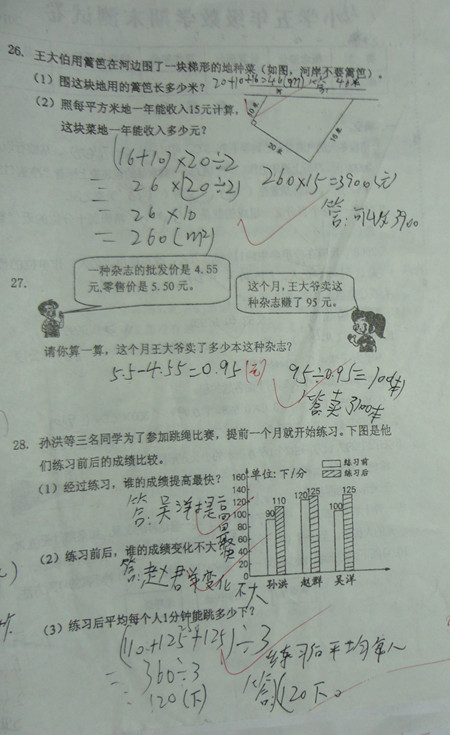 26. 王大伯用篱笆在河边围了一块梯形的地种菜(如图,河岸不要篱笆)。
(1) 围这块地用的篱笆长多少米? 20+10+16=46(m)
河
(2) 照每平方米地一年能收入15元计算,
这块菜地一年能收入多少元?
10米
20米
16米
(16+10)×20÷2
= 26×(20÷2)
= 26×10
= 260(m²)
260×15=3900(元)
答:可收入3900
27.
一种杂志的批发价是 4.55
元,零售价是 5.50 元。
这个月,王大爷卖这
种杂志赚了 95 元。
请你算一算,这个月王大爷卖了多少本这种杂志?
5.5-4.55=0.95(元)
95÷0.95=100(本)
答:卖了100本
28. 孙洪等三名同学为了参加跳绳比赛,提前一个月就开始练习。下图是他
们练习前后的成绩比较。
(1) 经过练习,谁的成绩提高最快?
答:吴洋提高最
(2) 练习前后,谁的成绩变化不大
答:赵群变化不大
单位:下/分
练习前
练习后
160
140
120
100
80
60
40
20
0
90
110
120
125
100
125
孙洪 赵群 吴洋
(3) 练习后平均每个人1分钟能跳多少下?
(110+125+125)÷3
= 360÷3
= 120(下)
练习后平均每人
答:120下。